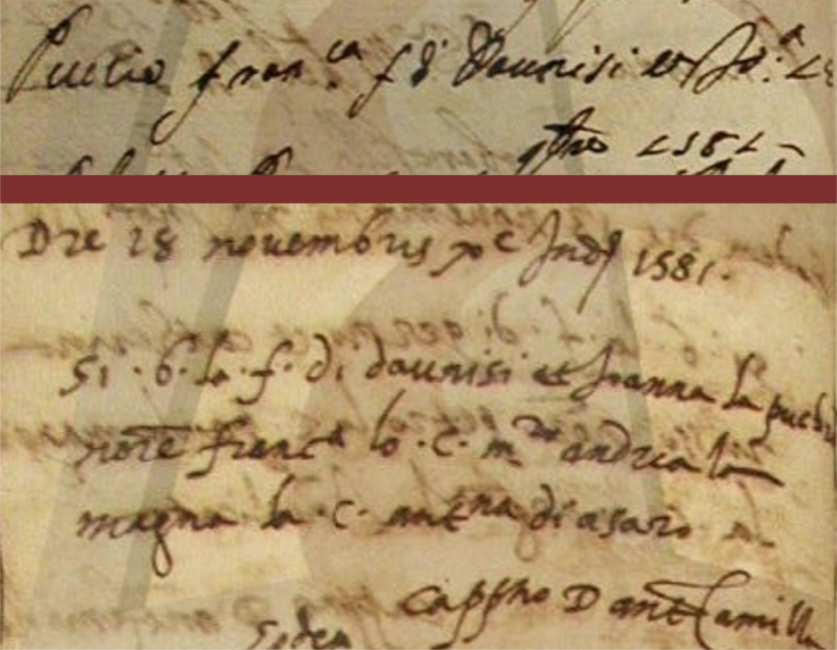 Puccio fran.ca f di Daunisi et Jo:a
9bro 1581
Die 18 novembris xe Ind 1581.
Si. b. la. f. di daunisi et Joanna la pucci
nōte franca lo. c. m.ro andrea la
magna la. c. antna di asaro
cappno D ant Camilla
Eodem